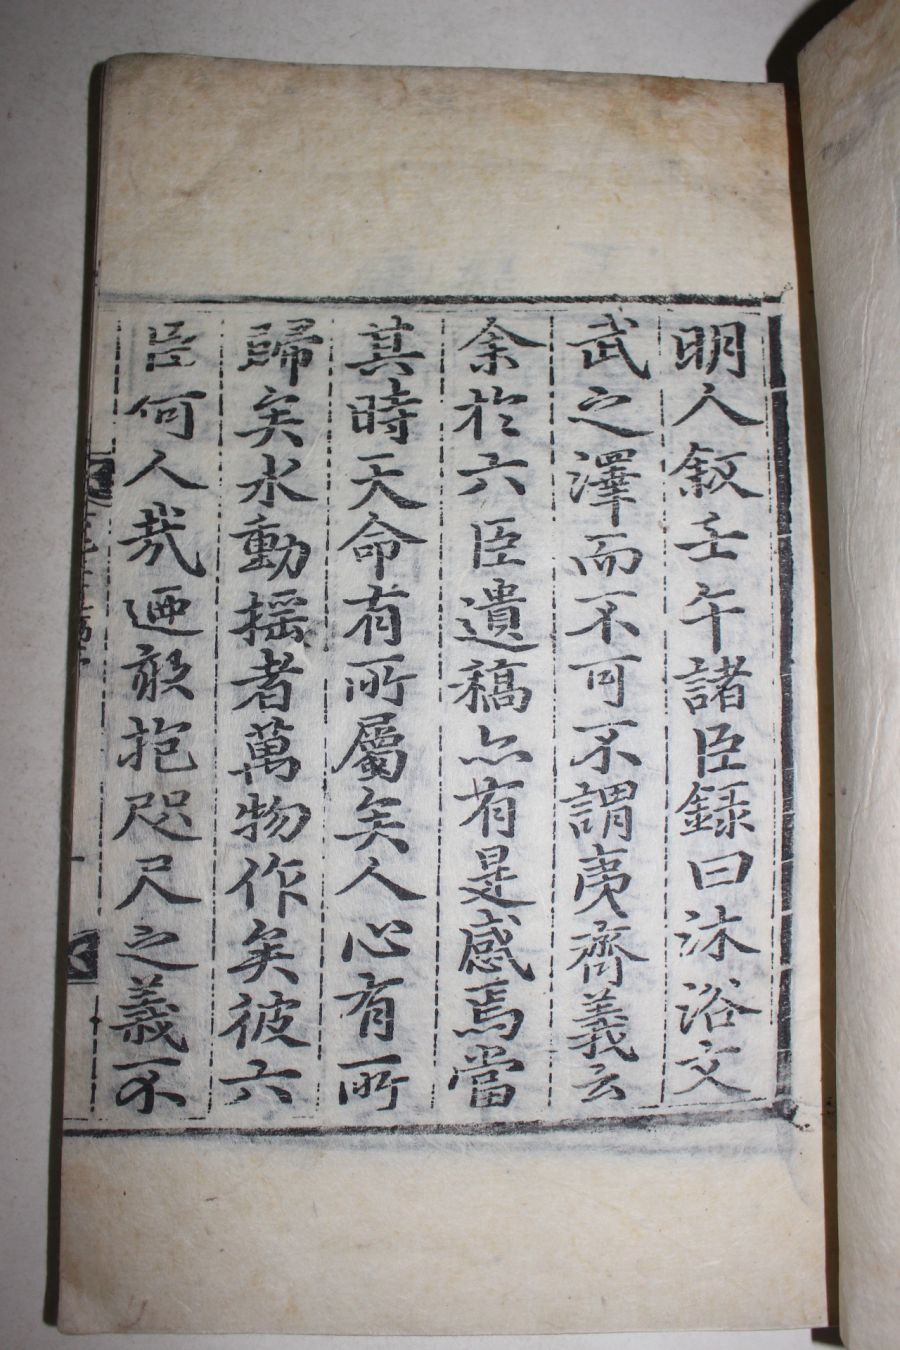 明人叙壬午諸臣録曰沐浴文
武之澤而不可不謂夷齊義云
余於六臣遺稿亦有是感焉當
其時天命有所屬矣人心有所
歸矣水動搖者萬物作矣彼六
臣何人哉迺敢抱咫尺之義不